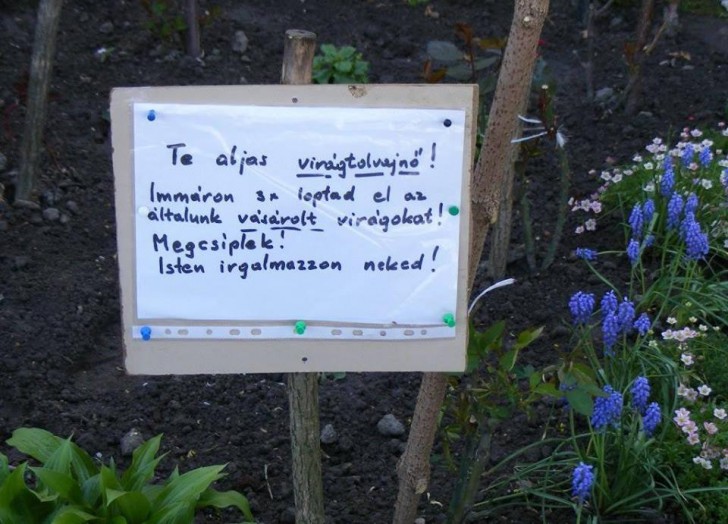 Te aljas virágtolvajnő!
Immáron 3x loptad el az
általunk vásárolt virágokat!
Megcsíplek!
Isten irgalmazzon neked!